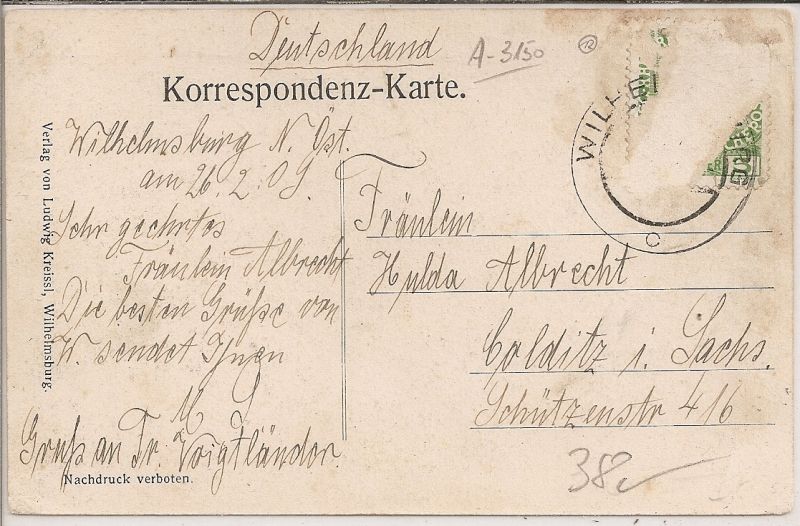 Deutschland
A-3150
12
Korrespondenz-Karte.
Wilhelmsburg N. Öst.
am 26.2.09
Sehr geehrtes
Fräulein Albrecht
Die besten Grüße von
W. sendet Ihnen
Gruß an Fr. Voigtländer.
Nachdruck verboten.
Verlag von Ludwig Kreissl, Wilhelmsburg.
Fräulein
Hulda Albrecht
Colditz i. Sachs.
Schützenstr 416
38